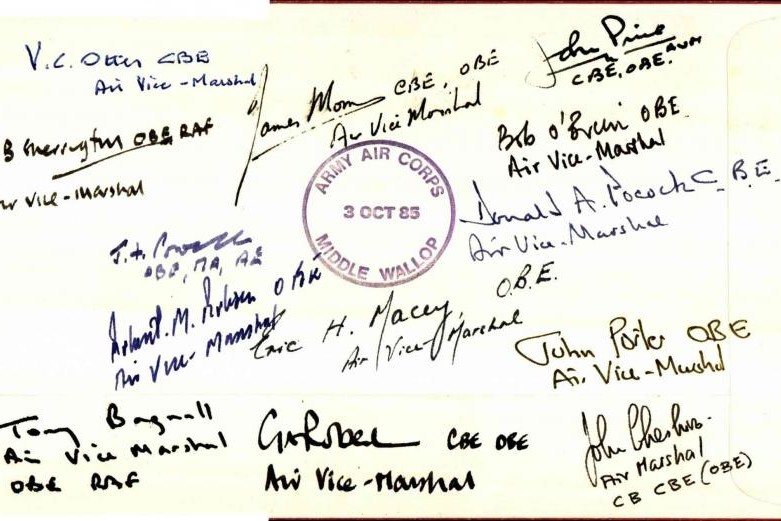 V.C. Otter CBE
Air Vice-Marshal
B Sherrington OBE RAF
Air Vice-Marshal
James Morris CBE, OBE
Air Vice Marshal
John Price
CBE, OBE. AVM
Bob O'Brien OBE
Air Vice-Marshal
ARMY AIR CORPS
3 OCT 85
MIDDLE WALLOP
Donald A. Pocock C.B.E.
Air Vice-Marshal
O.B.E.
J.H. Powell
OBE, MA, AE
M. Robson OBE
Air Vice Marshal
Eric H. Macey
Air Vice-Marshal
John Porter OBE
Air Vice-Marshal
Tony Bagnall
Air Vice Marshal
OBE RAF
CBE OBE
Air Vice-Marshal
John Cheshire
Air Marshal
CB CBE (OBE)